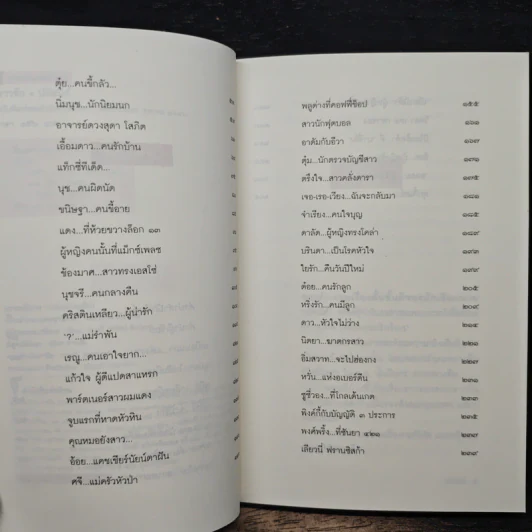 ตุ๋ย...คนขี้กลัว...
นิ่มนุช...นักนิยมนก
อาจารย์ดวงสุดา โสภิต
เอื้อมดาว...คนรักบ้าน
แท็กซี่ทีเด็ด...
นุช...คนผิดนัด
ขนิษฐา...คนขี้อาย
แดง...ที่ห้วยขวางล็อก ๑๓
ผู้หญิงคนนั้นที่แม็กซ์เพลซ
ช้องมาศ...สาวทรงเอสโซ่
นุชจรี...คนกลางคืน
คริสตินเหลียว...ผู้น่ารัก
'?'...แม่รำพัน
เรณู...คนเอาใจยาก...
แก้วใจ ผู้ดีแปดสาแหรก
พาร์ตเนอร์สาวผมแดง
จูบแรกที่หาดหัวหิน
คุณหมอยังสาว...
อ้อย...แคชเชียร์นัยน์ตาฝัน
ศจี...แม่ครัวหัวป่า
พลูด่างที่คอฟฟี่ช็อป ๑๕๕
สาวนักฟุตบอล ๑๖๑
อาดัมกับอีวา ๑๖๗
ตุ้ม...นักตรวจบัญชีสาว ๑๗๑
ตรึงใจ...สาวคลั่งดารา ๑๗๕
เจอ-เรอ-เวียง...ฉันจะกลับมา ๑๘๑
จำเรียง...คนใจบุญ ๑๘๕
ดาลัด...ผู้หญิงทรงโคล่า ๑๘๙
บรินดา...เป็นโรคหัวใจ ๑๙๓
ใยรัก...คืนวันปีใหม่ ๑๙๙
ต้อย...คนรักลูก ๒๐๕
หริ่งรัก...คนมีลูก ๒๐๙
ดาว...หัวใจไม่ว่าง ๒๑๕
นิตยา...ฆาตกรสาว ๒๒๑
อิ่มสวาท...จะไปฮ่องกง ๒๒๗
หวั่น...แห่งอเบอร์ดีน ๒๓๑
ซูซี่วอง...ที่โกลเด้นเกต ๒๓๓
พิงค์กี้กับบัญญัติ ๓ ประการ ๒๓๕
พงศ์พริ้ง...ที่ซันยา ๔๒๑ ๒๓๗
เลียวนี่ ฟรานซิสก้า ๒๓๙